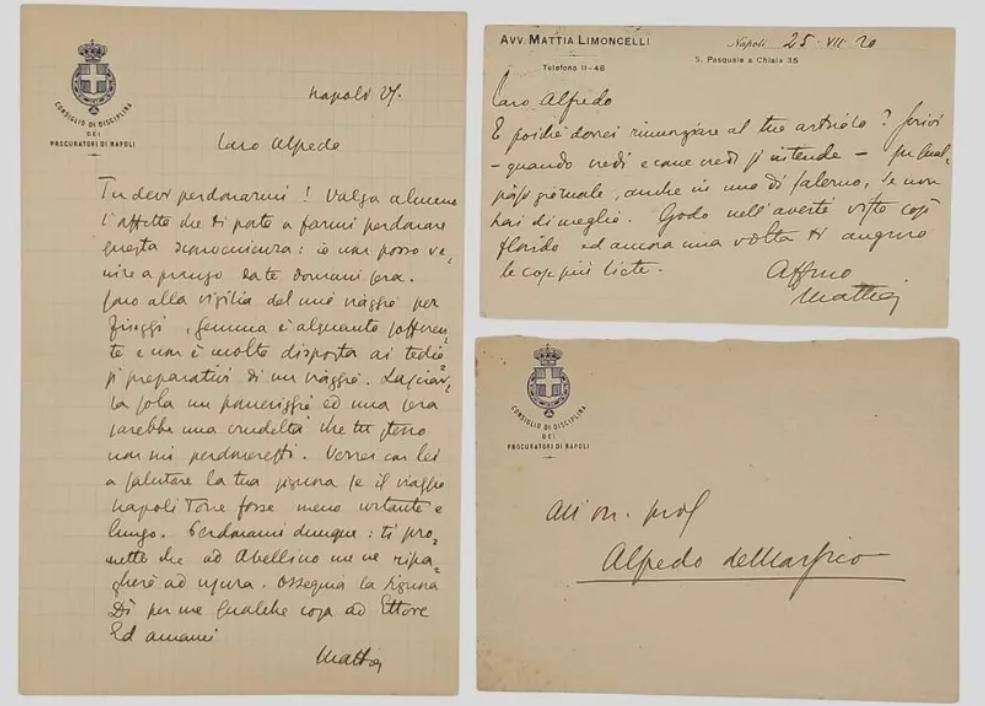 CONSIGLIO DI DISCIPLINA
DEI
PROCURATORI DI NAPOLI
Napoli 27.
Caro Alfredo
Tu devi perdonarmi! Valga almeno
l'affetto che ti porto a farmi perdonare
questa : io non posso ve-
nire a pranzo da te domani sera.
Sono alla vigilia del mio viaggio per
Fiuggi, Gemma è alquanto sofferen-
te e non è molto disposta ai tedii
pi preparativi di un viaggio. Lasciar-
la sola un pomeriggio ed una sera
sarebbe una crudeltà che tu stesso
non mi perdoneresti. Verrei con lei
a salutare la tua signora se il viaggio
Napoli Torre fosse meno irritante e
lungo. Perdonami dunque: ti pro-
metto che ad Avellino me ne ripa-
gherò ad usura. Ossequia la signora
Dì per me qualche cosa ad Ettore
Ed amami
Mattia
AVV. MATTIA LIMONCELLI
Telefono 11-48
Napoli 25 - VII 20
S. Pasquale a Chiaia 35
Caro Alfredo
E poiché dovrei rinunziare al tuo articolo? Scrivi
- quando vedi e come vedi s'intende - su qual-
siasi giornale, anche in uno di Salerno, se non
hai di meglio. Godo nell'averti visto così
florido ed ancora una volta ti auguro
le cose più liete.
Affmo
Mattia
CONSIGLIO DI DISCIPLINA
DEI
PROCURATORI DI NAPOLI
All'on. prof
Alfredo deMarsico